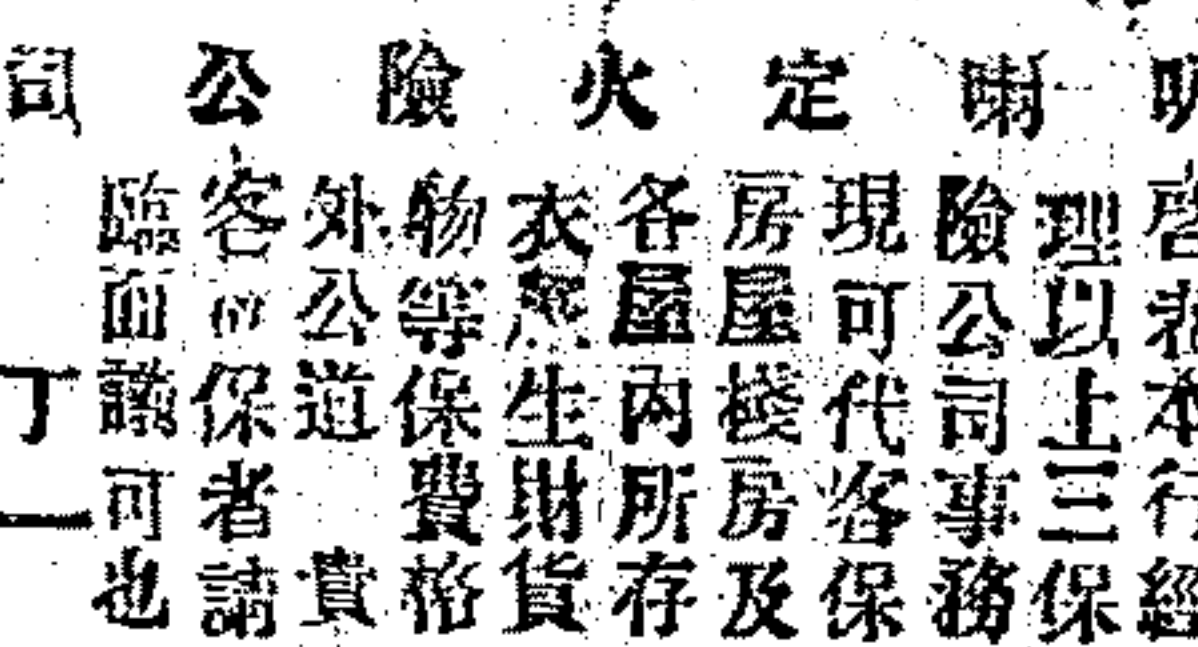 喇定火險公司
啓者本行經
理以上三保
險公司事務
現可代客保
房屋棧房及
各屋內所存
衣生財貨
物等保費格
外公道 貴
客保者請
臨面議可也
丁一